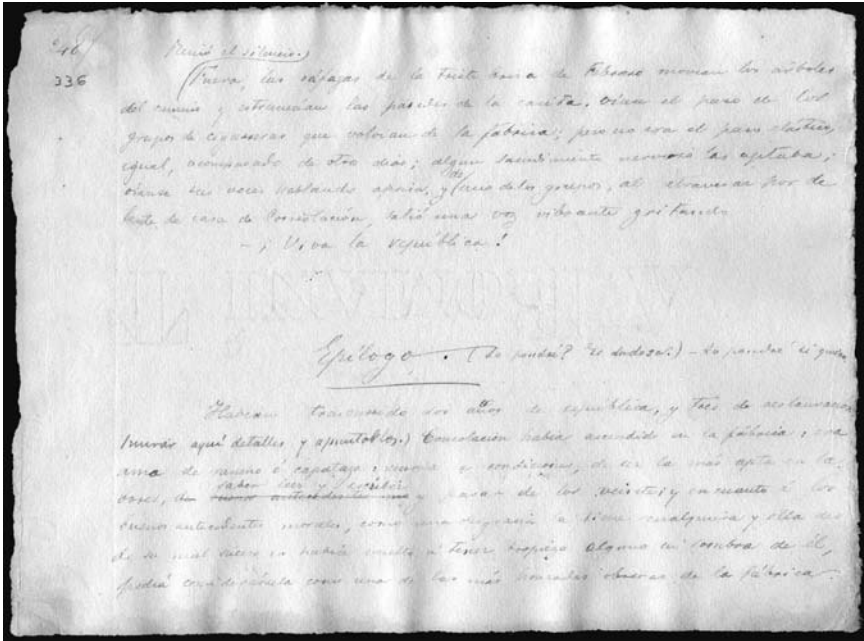 246
336
Reinó el silencio.)
Fuera, las ráfagas de la triste brisa de Febrero movían los árboles
del camino y estremecían las paredes de la casita. Oían el paso de los
grupos de cigarreras que volvían de la fábrica; pero no era el paso elástico,
igual, acompasado de otros días; algun sacudimiento nervioso las agitaba;
oíanse sus voces hablando aprisa, y de uno de los grupos, al atravesar por de
lante de casa de Consolación, salió una voz vibrante gritando
- ¡Viva la república!
Epílogo. (Lo pondré? Es dudoso.) - Lo pondré si quiero
Habían transcurrido dos años de república, y tres de restauración
(mirar aquí detalles y apuntarlos.) Consolación había ascendido en la fábrica; era
ama de rancho ó capataza; reunía las condiciones, de ser la más apta en la-
saber leer y escribir
bores, de buenos antecedentes y pasar de los veintey en cuanto á los
buenos antecedentes morales, como una desgracia la tiene cualquiera y ella des
de su mal suceso no había vuelto á tener tropiezo alguno ni sombra de él,
podía considerársela como una de las más honradas obreras de la Fábrica.